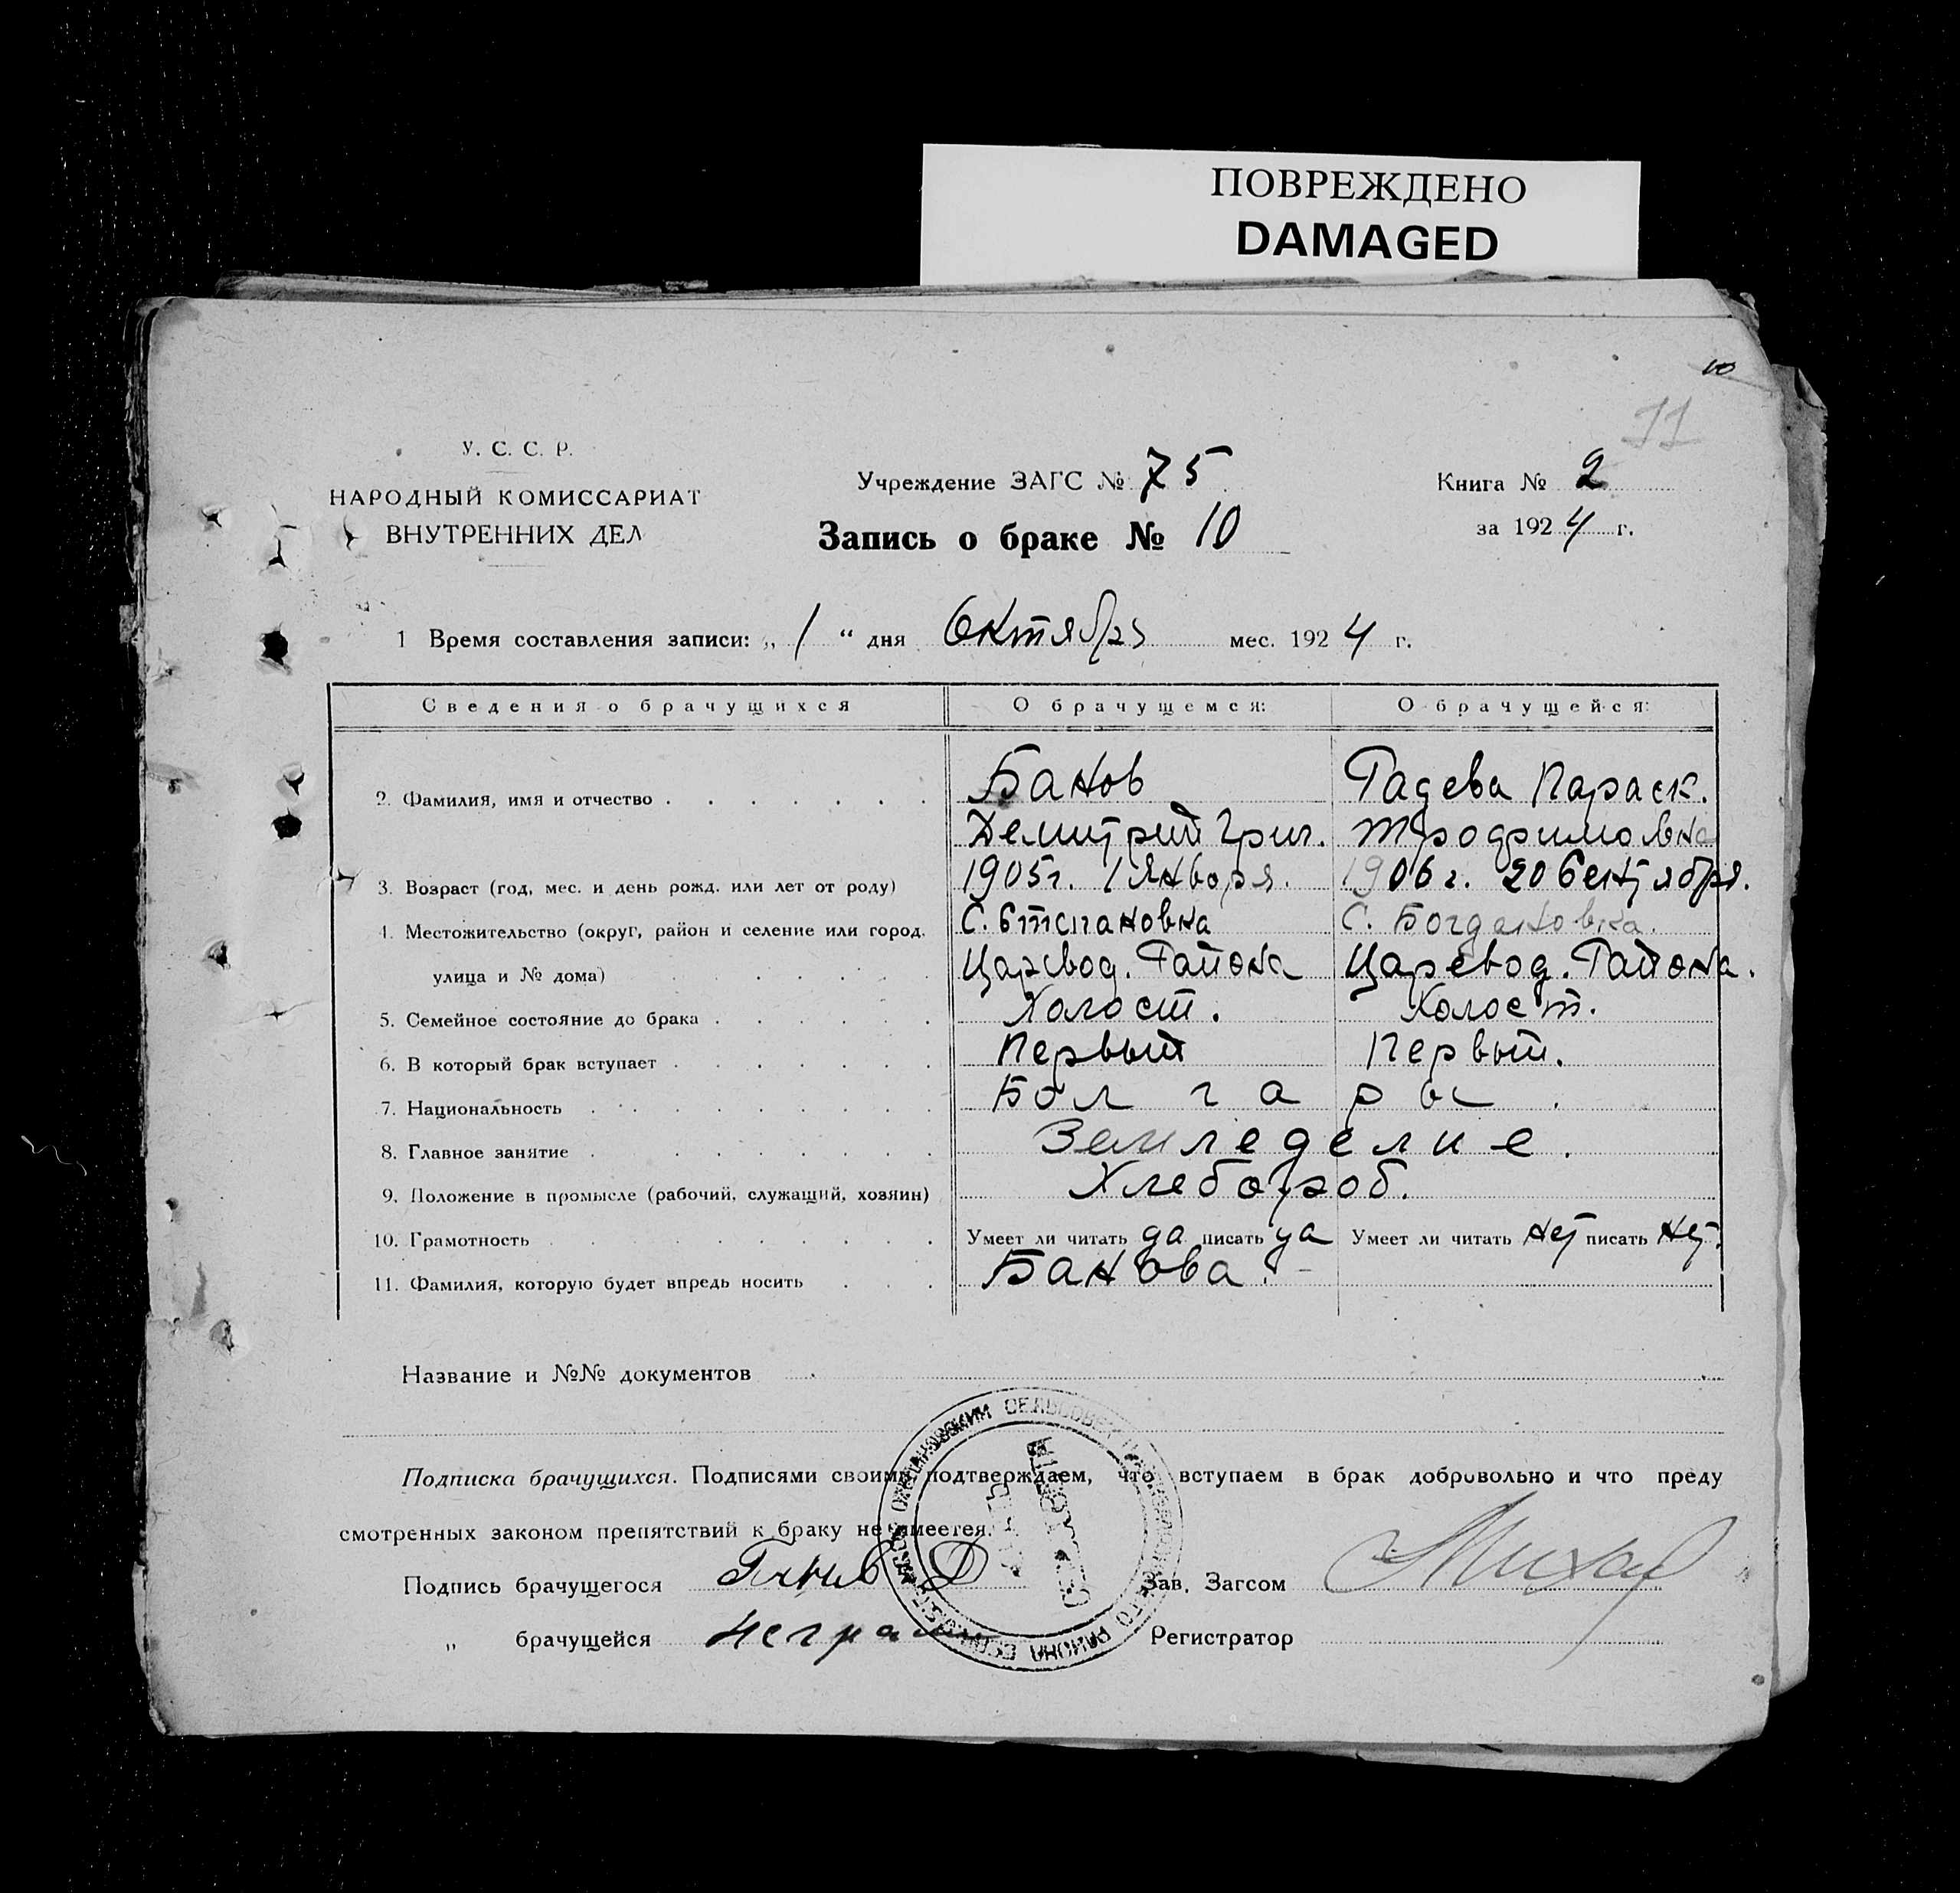 ПОВРЕЖДЕНО
DAMAGED
10
11
У. С. С. Р.
НАРОДНЫЙ КОМИССАРИАТ
ВНУТРЕННИХ ДЕЛ
Учреждение ЗАГС № 75
Запись о браке № 10
Книга № 2
за 1924 г.
1 Время составления записи: „ 1 “ дня Октября мес. 1924 г.
Сведения о брачущихся О брачущемся: О брачущейся:
2. Фамилия, имя и отчество Банов Гадева Параск.
Демитрий Григ. Трофимовна
3. Возраст (год, мес. и день рожд. или лет от роду) 1905г. 1 Января. 1906 г. 20 Сентября.
4. Местожительство (округ, район и селение или город, С. Степановка С. Богдановка.
улица и № дома) Царевод. Района Царевод. Района.
5. Семейное состояние до брака Холост. Холост.
6. В который брак вступает Первый Первый.
7. Национальность Болгары.
8. Главное занятие Земледелие.
9. Положение в промысле (рабочий, служащий, хозяин) Хлебороб.
10. Грамотность Умеет ли читать да писать да Умеет ли читать нет писать нет.
11. Фамилия, которую будет впредь носить Банова.
Название и №№ документов
Подписка брачущихся. Подписями своими подтверждаем, что вступаем в брак добровольно и что преду
смотренных законом препятствий к браку не имеется.
Подпись брачущегося Зав. Загсом
„ брачущейся неграмот Регистратор